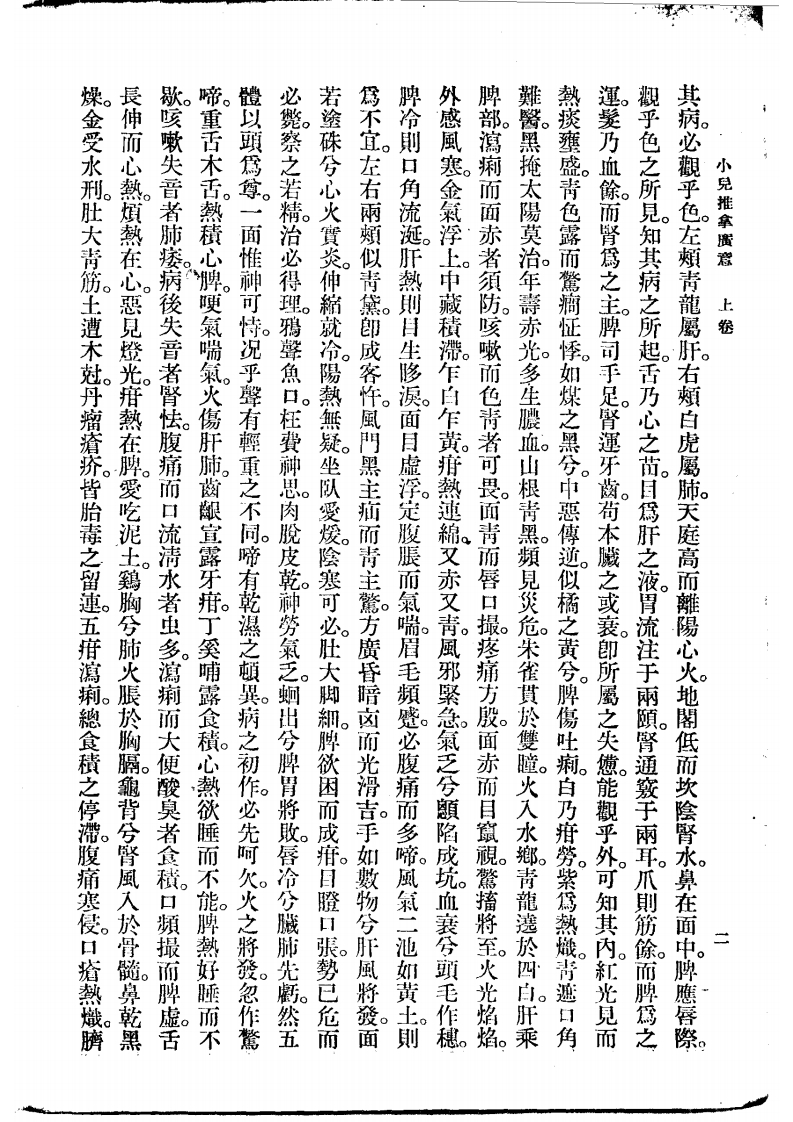 小兒推拿廣意　上卷　二
其病必觀乎色。左頰青龍屬肝。右頰白虎屬肺。天庭高而離陽心火。地閣低而坎陰腎水。鼻在面中。脾應唇際。
觀乎色之所見。知其病之所起。舌乃心之苗。目爲肝之液。胃流注于兩頤。腎通竅于兩耳。爪則筋餘。而脾爲之
運。髮乃血餘。而腎爲之主。脾司手足。腎運牙齒。苟本臟之或衰。卽所屬之失憊。能觀乎外。可知其內。紅光見而
熱痰壅盛。青色露而驚癇怔悸。如煤之黑兮。中惡傳逆。似橘之黃兮。脾傷吐痢。白乃疳勞。紫爲熱熾。青遮口角
難醫。黑掩太陽莫治。年壽赤光。多生膿血。山根青黑。頻見災危。朱雀貫於雙瞳。火入水鄉。青龍遶於四白。肝乘
脾部。瀉痢而面赤者須防。咳嗽而色青者可畏。面青而唇口撮。疼痛方殷。面赤而目竄視。驚搐將至。火光焰焰。
外感風寒。金氣浮上。中藏積滯。乍白乍黃。疳熱連綿。又赤又青。風邪緊急。氣乏兮顖陷成坑。血衰兮頭毛作穗。
脾冷則口角流涎。肝熱則目生眵淚。面目虛浮。定腹脹而氣喘。眉毛頻蹙。必腹痛而多啼。風氣二池如黃土。則
爲不宜。左右兩頰似青黛。卽成客忤。風門黑主疝而青主驚。方廣昏暗凶而光滑吉。手如數物兮肝風將發。面
若塗硃兮心火實炎。伸縮就冷。陽熱無疑。坐臥愛煖。陰寒可必。肚大脚細。脾欲困而成疳。目瞪口張。勢已危而
必斃。察之若精。治必得理。鴉聲魚口。枉費神思。肉脫皮乾。神勞氣乏。蛔出兮脾胃將敗。唇冷兮臟肺先虧。然五
體以頭爲尊。一面惟神可恃。况乎聲有輕重之不同。啼有乾濕之頓異。病之初作。必先呵欠。火之將發。忽作驚
啼。重舌木舌。熱積心脾。哽氣喘氣。火傷肝肺。齒齦宣露牙疳。丁奚哺露食積。心熱欲睡而不能。脾熱好睡而不
歇。咳嗽失音者肺痿。病後失音者腎怯。腹痛而口流淸水者虫多。瀉痢而大便酸臭者食積。口頻撮而脾虛。舌
長伸而心熱。煩熱在心。惡見燈光。疳熱在脾。愛吃泥土。鷄胸兮肺火脹於胸膈。龜背兮腎風入於骨髓。鼻乾黑
燥。金受水刑。肚大青筋。土遭木尅。丹瘤瘡疥。皆胎毒之留連。五疳瀉痢。總食積之停滯。腹痛寒侵。口瘡熱熾。臍